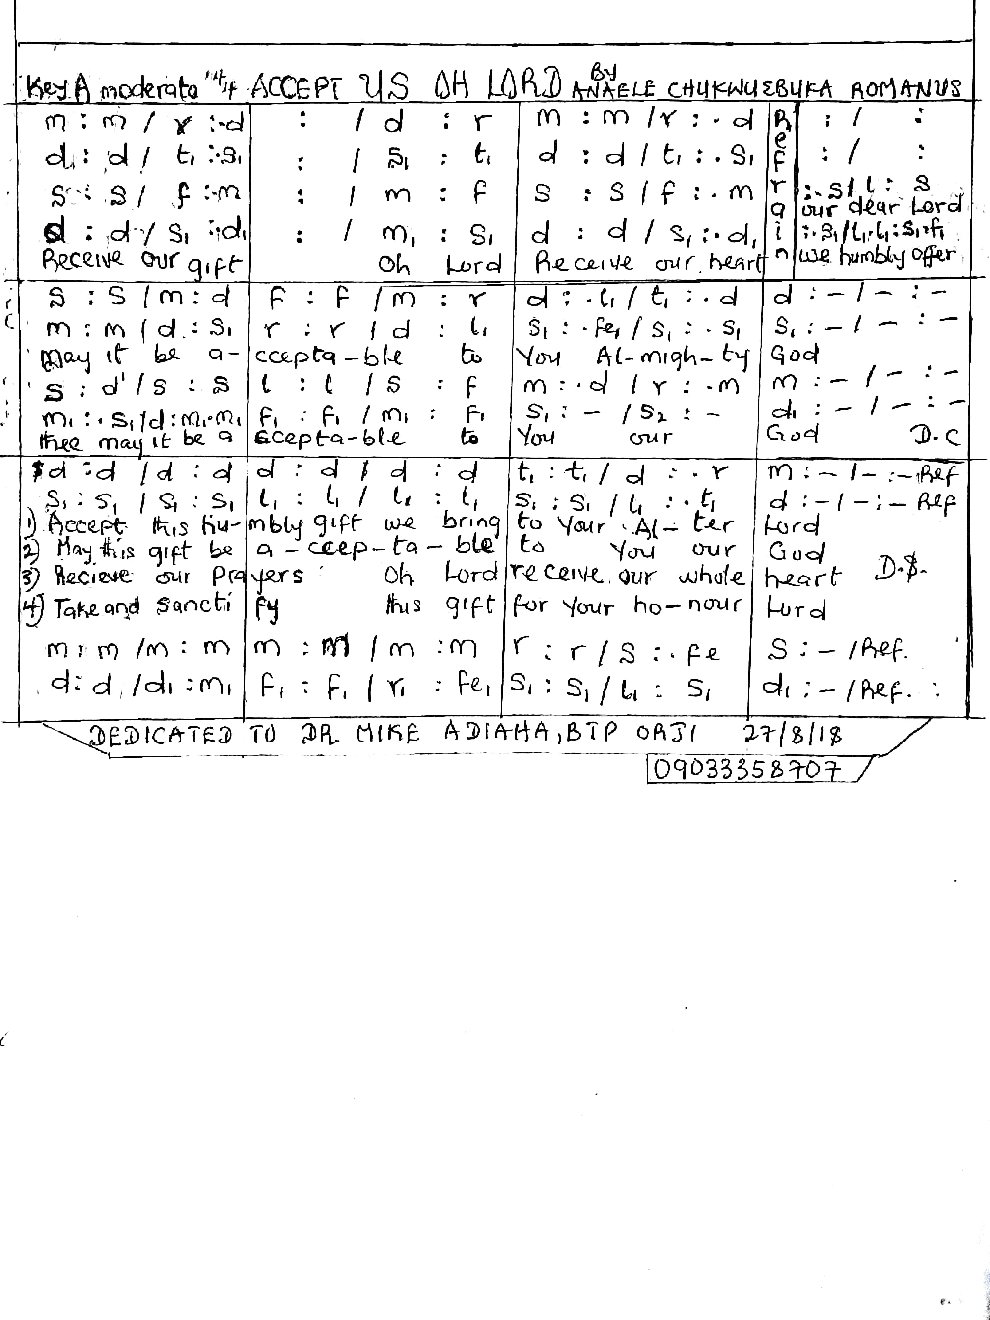 Key A moderato 4/4 ACCEPT US OH LORD BY ANAELE CHUKWUEBUKA ROMANUS
m : m / r : . d | : / d : r | m : m / r : . d | Refrain | : / :
d₁ : d / t₁ : . s₁ | : / s₁ : t₁ | d : d / t₁ : . s₁ | : / :
s : s / f : . m | : / m : f | s : s / f : . m | : . s / l : s
our dear Lord
d : d / s₁ : . d₁ | : / m₁ : s₁ | d : d / s₁ : . d₁ | : . s₁ / l₁ . l₁ : s₁ . f₁
Receive our gift | Oh Lord | Receive our heart | we humbly offer
s : s / m : d | f : f / m : r | d : . l₁ / t₁ : . d | d : – / – : –
m : m / d : s₁ | r : r / d : l₁ | s₁ : . fe₁ / s₁ : . s₁ | s₁ : – / – : –
May it be a- | ccepta-ble to | You Al-migh-ty | God
s : d' / s : s | l : l / s : f | m : . d / r : . m | m : – / – : –
m₁ : . s₁ / d : m₁ . m₁ | f₁ : f₁ / m₁ : f₁ | s₁ : – / s₂ : – | d₁ : – / – : –
thee may it be a | ccepta-ble to | You our | God D.C
$ d : d / d : d | d : d / d : d | t₁ : t₁ / d : . r | m : – / – : – Ref
s₁ : s₁ / s₁ : s₁ | l₁ : l₁ / l₁ : l₁ | s₁ : s₁ / l₁ : . t₁ | d : – / – : – Ref
1) Accept this hu- | mbly gift we bring | to Your Al-ter | Lord
2) May this gift be | a-ccep-ta-ble | to You our | God
3) Recieve our Pra | yers Oh Lord | receive our whole | heart D.$.
4) Take and Sancti | fy this gift | for Your ho-nour | Lord
m : m / m : m | m : m / m : m | r : r / s : . fe | s : – / Ref.
d : d / d₁ : m₁ | f₁ : f₁ / r₁ : fe₁ | s₁ : s₁ / l₁ : s₁ | d₁ : – / Ref. :
DEDICATED TO DR MIKE ADIAHA, BTP ORJI 27/8/18
09033358707